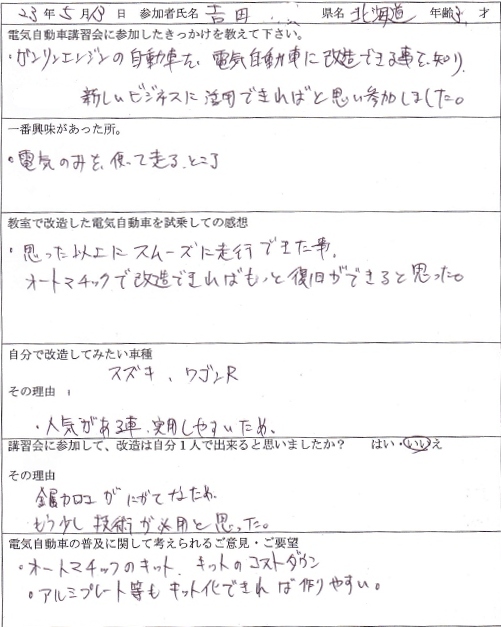 23年5月13日 参加者氏名 吉田 県名 北海道 年齢 才
電気自動車講習会に参加したきっかけを教えて下さい。
・ガソリンエンジンの自動車を、電気自動車に改造できる事を、知り、
新しいビジネスに活用できればと思い参加しました。
一番興味があった所。
・電気のみを、使って走る、ところ
教室で改造した電気自動車を試乗しての感想
・思った以上にスムーズに走行できた事、
オートマチックで改造できればもっと復旧ができると思った。
自分で改造してみたい車種
スズキ、ワゴンR
その理由
・人気がある車、実用しやすいため、
講習会に参加して、改造は自分1人で出来ると思いましたか? はい・いいえ
その理由
金属加工がにがてなため
もう少し技術が必用と思った。
電気自動車の普及に関して考えられるご意見・ご要望
・オートマチックのキット、キットのコストダウン
・アルミプレート等もキット化できれば作りやすい。